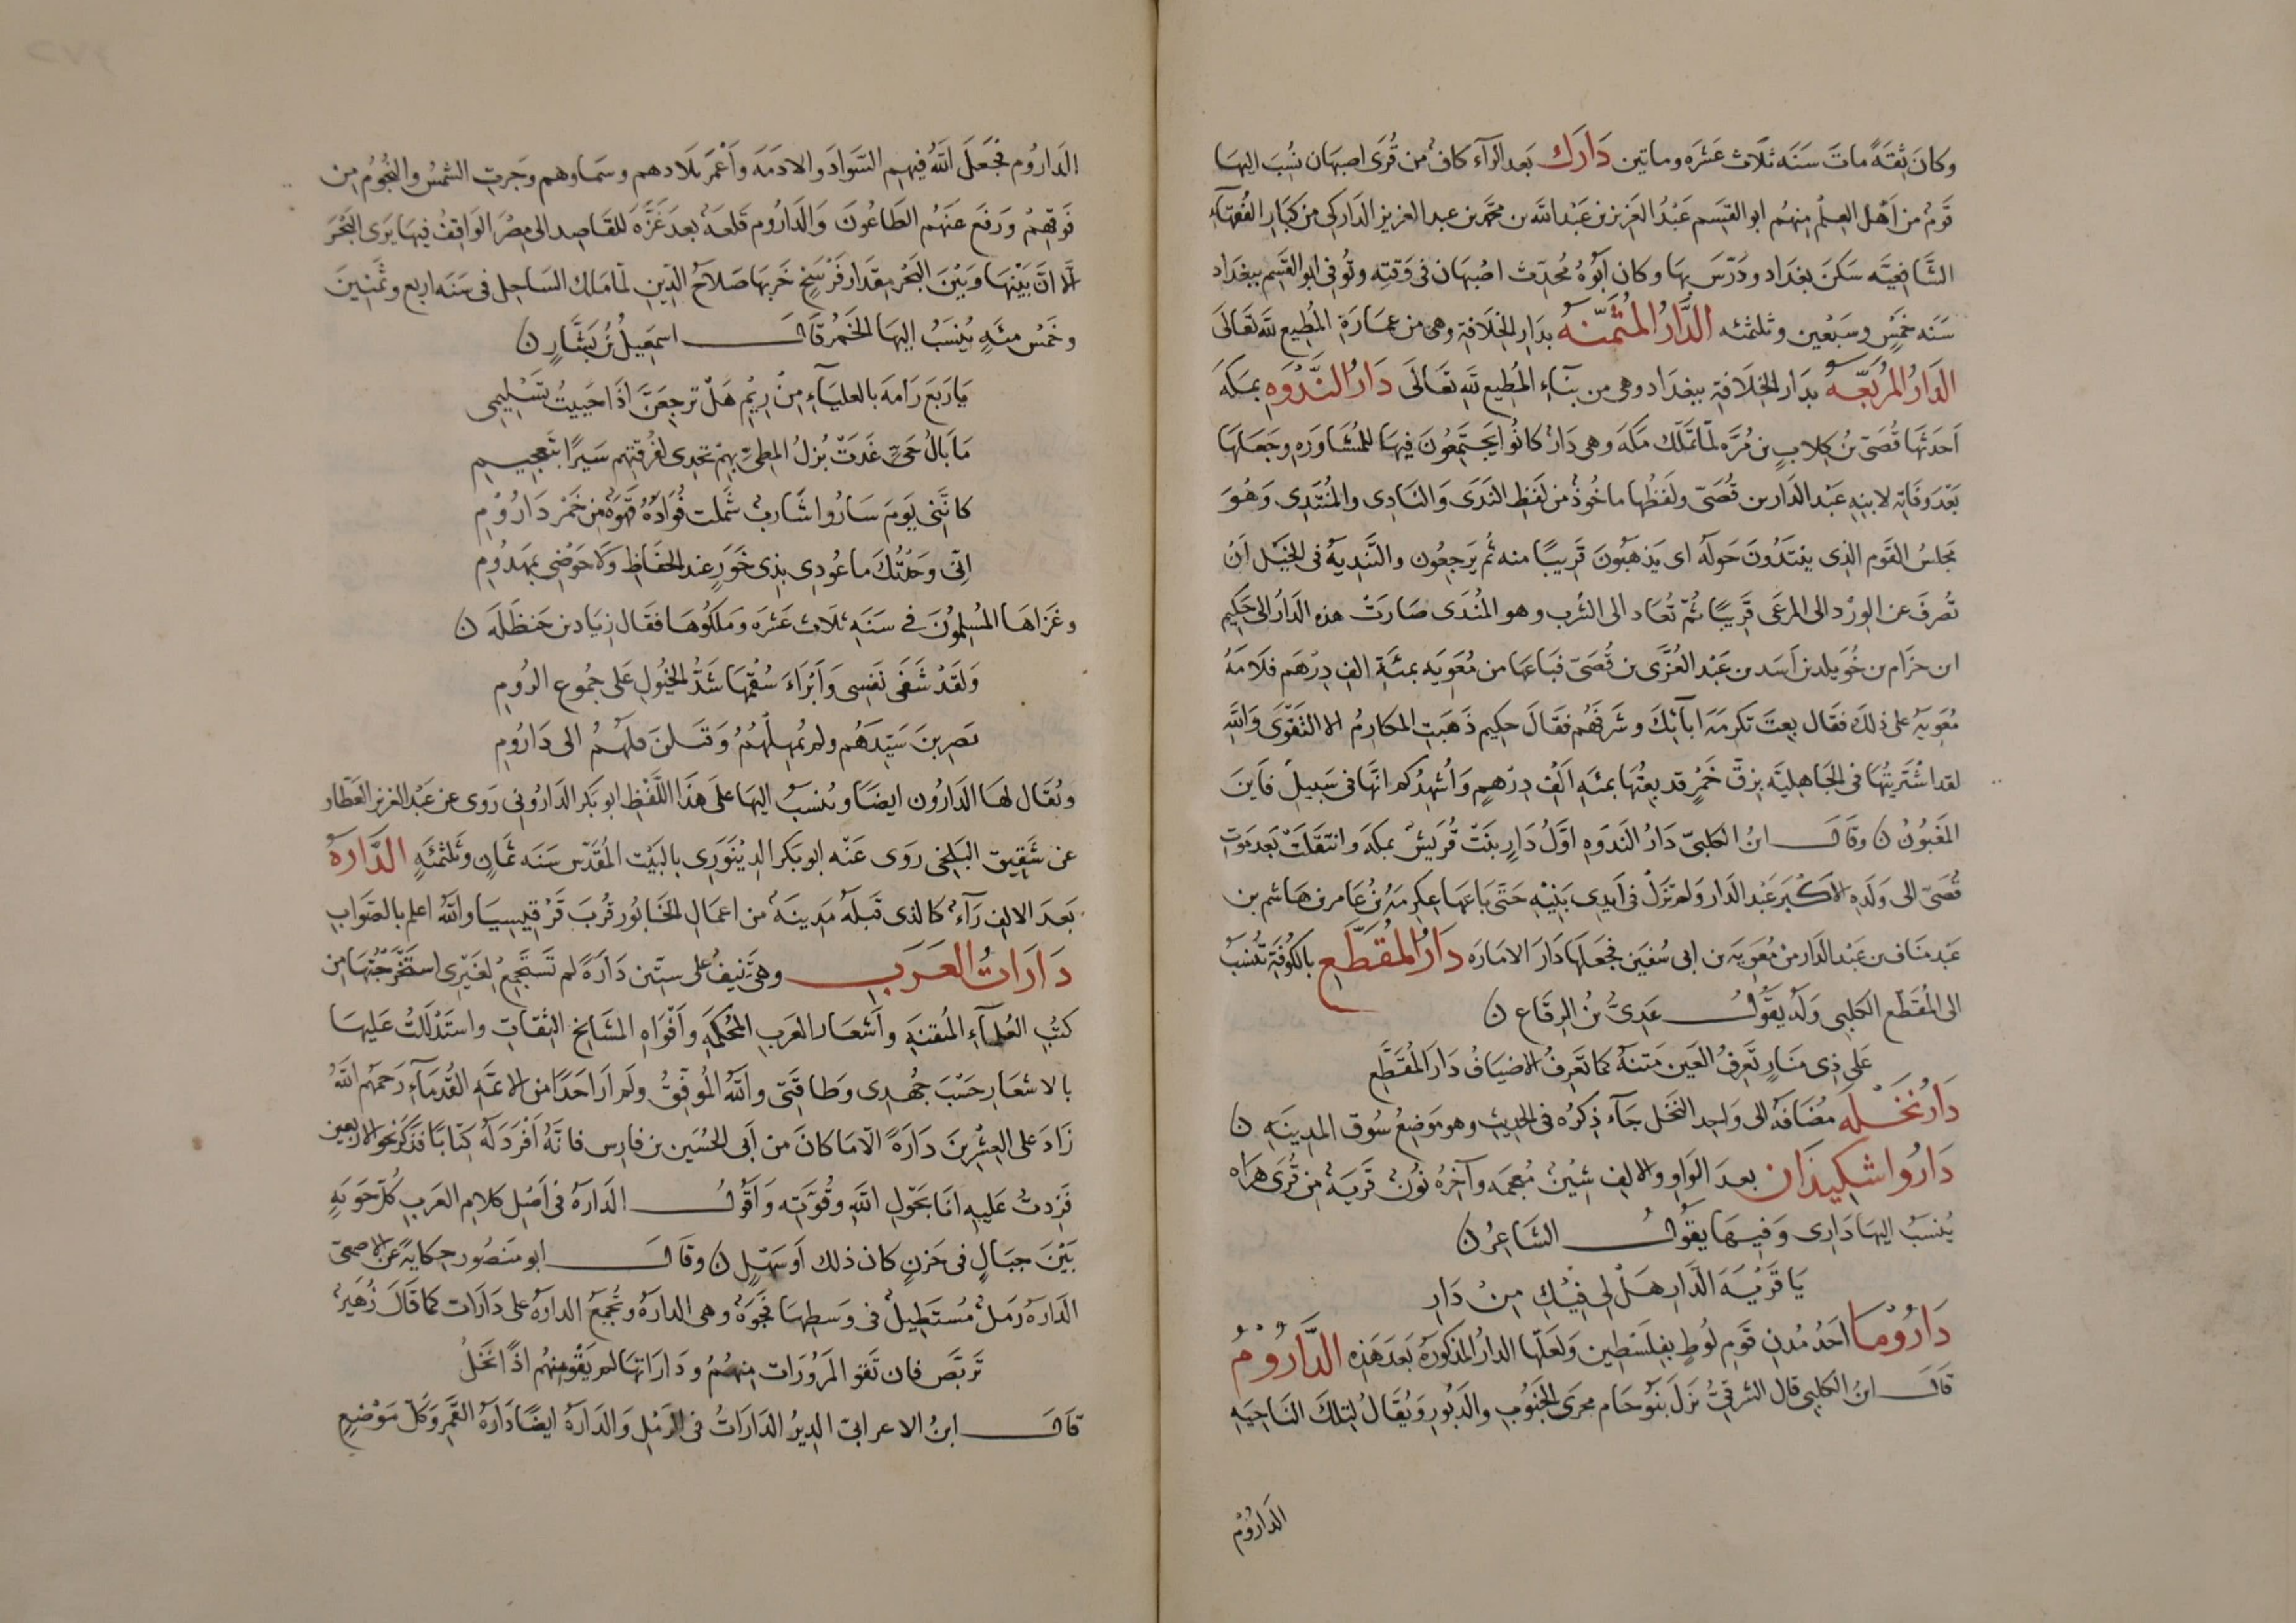 وكانَ ثِقَةً ماتَ سَنَه ثلَاث عَشرَه وماتين دَارَك بَعد الرّآء كافٌ من قُرَى اصبهَان نُسُبَ اليهَا
قَومٌ من اَهْل العِلْم مِنهُم ابو القسَم عَبْدُ العَزيز بن عَبْد الله بن محمّد بن عبد العزيز الدَاركى من كبَار الفُقهآء
الشَافِعيَّه سَكنَ بغدَاد ودَرّسَ بهَا وكان اَبُوهُ مُحدِّث اصْبهَان فى وَقتِه وتُوفى ابو القَسِم ببغدَاد
سَنَه خَمسٍ وسَبْعين وثلثمئه الدَّارُ المثَمّنَه بدَار الخلَافة وهى من عمَارَة المُطيع لله تعَالَى
الدَارُ المُربَّعَه بدَار الخِلَافةِ ببغدَاد وهى من بنآء المُطِيع للهِ تعَالَى دَارُ النَّدْوَه بمَكةَ
اَحدَثهَا قُصَىّ بنُ كِلابٍ بن مُرّه لمّا تملّك مَكةَ وهى دَارٌ كانُوا يَجتَمِعُونَ فيهَا للمُشَاوَرَه وجَعَلهَا
بَعْدَ وَفَاته لابنهِ عَبْد الدَار بن قُصَىّ ولَفظُها ماخُوذٌ من لَفظِ النَدَى وَالنَادِى والمُنتَدِى وَهُوَ
مَجلسُ القَوم الذى ينتَدُونَ حَولَه اى يَذهَبُونَ قَرِيبًا منه ثُم يَرجِعُون والتَّندِيَه فى الخَيْل اَنْ
تُصرفَ عن الورْد الى المرعَى قَرِيبًا ثُمّ تُعَاد الى الشُرب وهو المُندَى صَارَتْ هذه الدَارُ الى حَكيم
ابن حزَام بن خُوَيلد بن اَسَد بن عَبْد العُزَّى بن قُصَىّ فبَاعهَا من مُعَويَه بمئَةِ الفِ دِرْهَم فلَامَهُ
مُعَويَه على ذلكَ فقَال بِعتَ مَكرمَه اَبآئِكَ وشَرفَهُم فقَالَ حكيم ذَهَبَتِ المكارِمُ الا التَّقوَى وَاللهِ
لقد اشتَرَيتُهَا فى الجَاهليَّه بزقِّ خَمْرٍ قد بِعتُهَا بمئَه اَلفِ دِرْهمٍ وَاُشهِدُكم انَّهَا فى سَبيل فاَينَ
المَغبُونُ ن وقَالَ ابنُ الكلبىّ دَارُ النَدوَه اوَّلُ دَارٍ بنَتْ قُرَيشٌ بمكةَ وانتقَلَتْ بَعدَ مَوت
قُصَىّ الى وَلَدِه الاكْبَر عَبْد الدَار ولم تزَلْ فى اَيدِى بَنيْهِ حَتى بَاعَهَا عِكرمَه بنُ عَامر بن هَاشم بن
عَبْد منَاف بن عَبْد الدَار من مُعَويَه بن ابى سُفيَن فجَعَلهَا دَارَ الامَارَه دَارُ المُقَطَّعِ بالكُوفَةِ تُنسَبُ
الى المُقَطَّع الكَلبِى وَلَه يقُولُ عَدِىُّ بنُ الرِقَاع ن
عَلى ذِى مَنَارٍ تَعرِفُ العَين مَتنَهُ كَمَا تَعرِفُ الاضيَافُ دَارَ المُقَطَّعِ
دَارُ نَخْلَه مُضَافَةٌ الى وَاحِد النَخل جَآءَ ذِكرُه فى الحَديث وهو مَوضِعُ سُوق المدينَه ن
دَارُوَا شكيذَان بعدَ الوَاو والالِف شِينٌ مُعجَمَه وآخِرُه نُونٌ قَريَةٌ مِن قُرَى هرَاه
يُنسَبُ اليهَا دَارِى وَفيهَا يقُولُ الشَاعِرُ ن
يَا قَرْيَةَ الدَّارِ هَلْ لى فِيْكِ مِنْ دَارِ
دَارُوْمَا اَحَدُ مُدنِ قَومِ لُوطٍ بفِلسَطِين وَلعَلّهَا الدارُ المذكُورَةُ بَعدَ هَذِه الدَّارُوْمُ
قَالَ ابنُ الكلبى قال الشرقىُّ نزَلَ بنُو حَام مجرَى الجَنُوبِ والدَبُورِ وَيُقَالُ لِتلكَ النَاحِيَهِ
الدَارُوْم
الدَارُوم فجَعَلَ اللهُ فيهِم السَّوَادَ والادَمَه وَاَعْمَرَ بلَادهم وسَمَاوهم وجَرتِ الشمسُ والنُجُومُ مِن
فَوقِهِمُ ورَفعَ عَنهُم الطَاعُونَ وَالدَارُوم قَلعَةٌ بعدَ غَزّهَ للقَاصِد الى مِصْر الوَاقِفُ فيهَا يَرَى البَحْر
الّا انَّ بَيْنهَا وَبَيْنَ البَحْر مِقدَار فَرْسَخ خَربَهَا صَلاَحُ الدِّين لمّا مَلك السَاحِل فى سَنَه اربع وثمَنينَ
وخَمْس مئَهٍ يُنسَبُ اليهَا الخَمرُ قَالَ اسمَعِيلُ بنُ يَسَارٍ ن
يَا رَبعَ رَامَه بالعليَآءِ مِنْ رِيْمِ هَلْ ترجِعَنَّ اذَا حَيَيتُ تَسْلِيمى
مَا بَالُ حَىٍّ غَدَتْ بُزلُ المطىِّ بهم تَخدِى لفُرقتِهِم سَيرًا بتَقحِيمِ
كانَّنِى يَومَ سَارُوا شَاربٌ شَملت فُوَادَهُ قَهوَةٌ مِن خَمْر دَارُوْمِ
اِنّى وَجَدّكَ ما عُودِى بذِى خَوَرٍ عندَ الحفَاظِ وَلا حَوْضى بمَهدُومِ
وغَزَاهَا المُسِلمُونَ فى سَنَه ثلَاث عَشرَه وَمَلكُوهَا فقَال زيَاد بن حَنظَلَه ن
وَلقَدْ شَفَى نَفسِى وَاَبْرَاءَ سُقمَهَا شَدُّ الخيُولِ عَلى جمُوع الرُومِ
يَضرِبنَ سَيّدَهُم ولم يُمهلْهُمْ وَقتَلنَ فلَّهُمْ الى دَارُومِ
ويُقَال لهَا الدَارُون ايضًا ويُنسَبُ اليها على هَذَا اللَّفظِ ابو بَكر الدَارُونى رَوى عن عَبْد العَزيز العَطّار
عن شَقِيق البَلخى رَوى عَنْه ابو بَكر الدِيْنَوَرِى بالبَيْت المُقَدّس سَنَه ثمَانٍ وثلثمئَهٍ الدَّارَهُ
بَعدَ الالِف رَآءٌ كالذى قَبلَهُ مَدِينَهٌ من اعمَال الخَابُور قُربَ قَرْقيسِيَا واللهُ اعلم بالصّوَاب
دَارَاتُ العَرَبِ وهى تنيفُ على ستّين دَارَهً لم تَستَجمِعْ لغَيْرى استَخرَجتُهَا مِن
كتُبِ العُلمآءِ المُتقنَهِ واَشعَار العَرَبِ المُحكمَهِ واَفْوَاهِ المشَايخ الثِقَاتِ واستَدْللتُ عَليهَا
بالاشعَارِ حَسْبَ جُهدِى وَطاقَتى واللهُ المُوفِّقُ ولم اَر اَحدًا من الائمّه القُدمَآءِ رَحمهُم اللهُ
زَادَ على العِشْرينَ دَارَهً الّا مَا كانَ من اَبى الحسَين بن فارِس فانّهُ اَفرَد لَهُ كِتَابًا فذكرَ نحو الاربعين
فَزِدتُ عَليهِ اَنَا بحَوْلِ اللهِ وقُوّتِه وَاَقُولُ الدَارَهُ فى اَصْل كلامِ العَربِ كُلّ جَوبَهٍ
بَيْنَ جبَالٍ فى حَزنٍ كان ذلك اَو سَهْلٍ ن وقَالَ ابو مَنصُور حِكايَةً عن الاصمعىّ
الدَارَهُ رَملٌ مُستَطِيلٌ فى وَسَطِهَا فَجوَةٌ وهى الدارَهُ وتُجمَعُ الدارَهُ على دَارَات كما قَالَ زُهَيرٌ
تَربّص فان تَقو المَرَورَات مِنهُمُ ودَارَاتهَا لم يَقو مِنهُم اذًا نَخلُ
قَالَ ابنُ الاعرابىّ الدِيرُ الدَارَاتُ فى الرّمْلِ وَالدَارَهُ ايضًا دَارَهُ القَمرِ وَكلّ مَوْضِعٍ